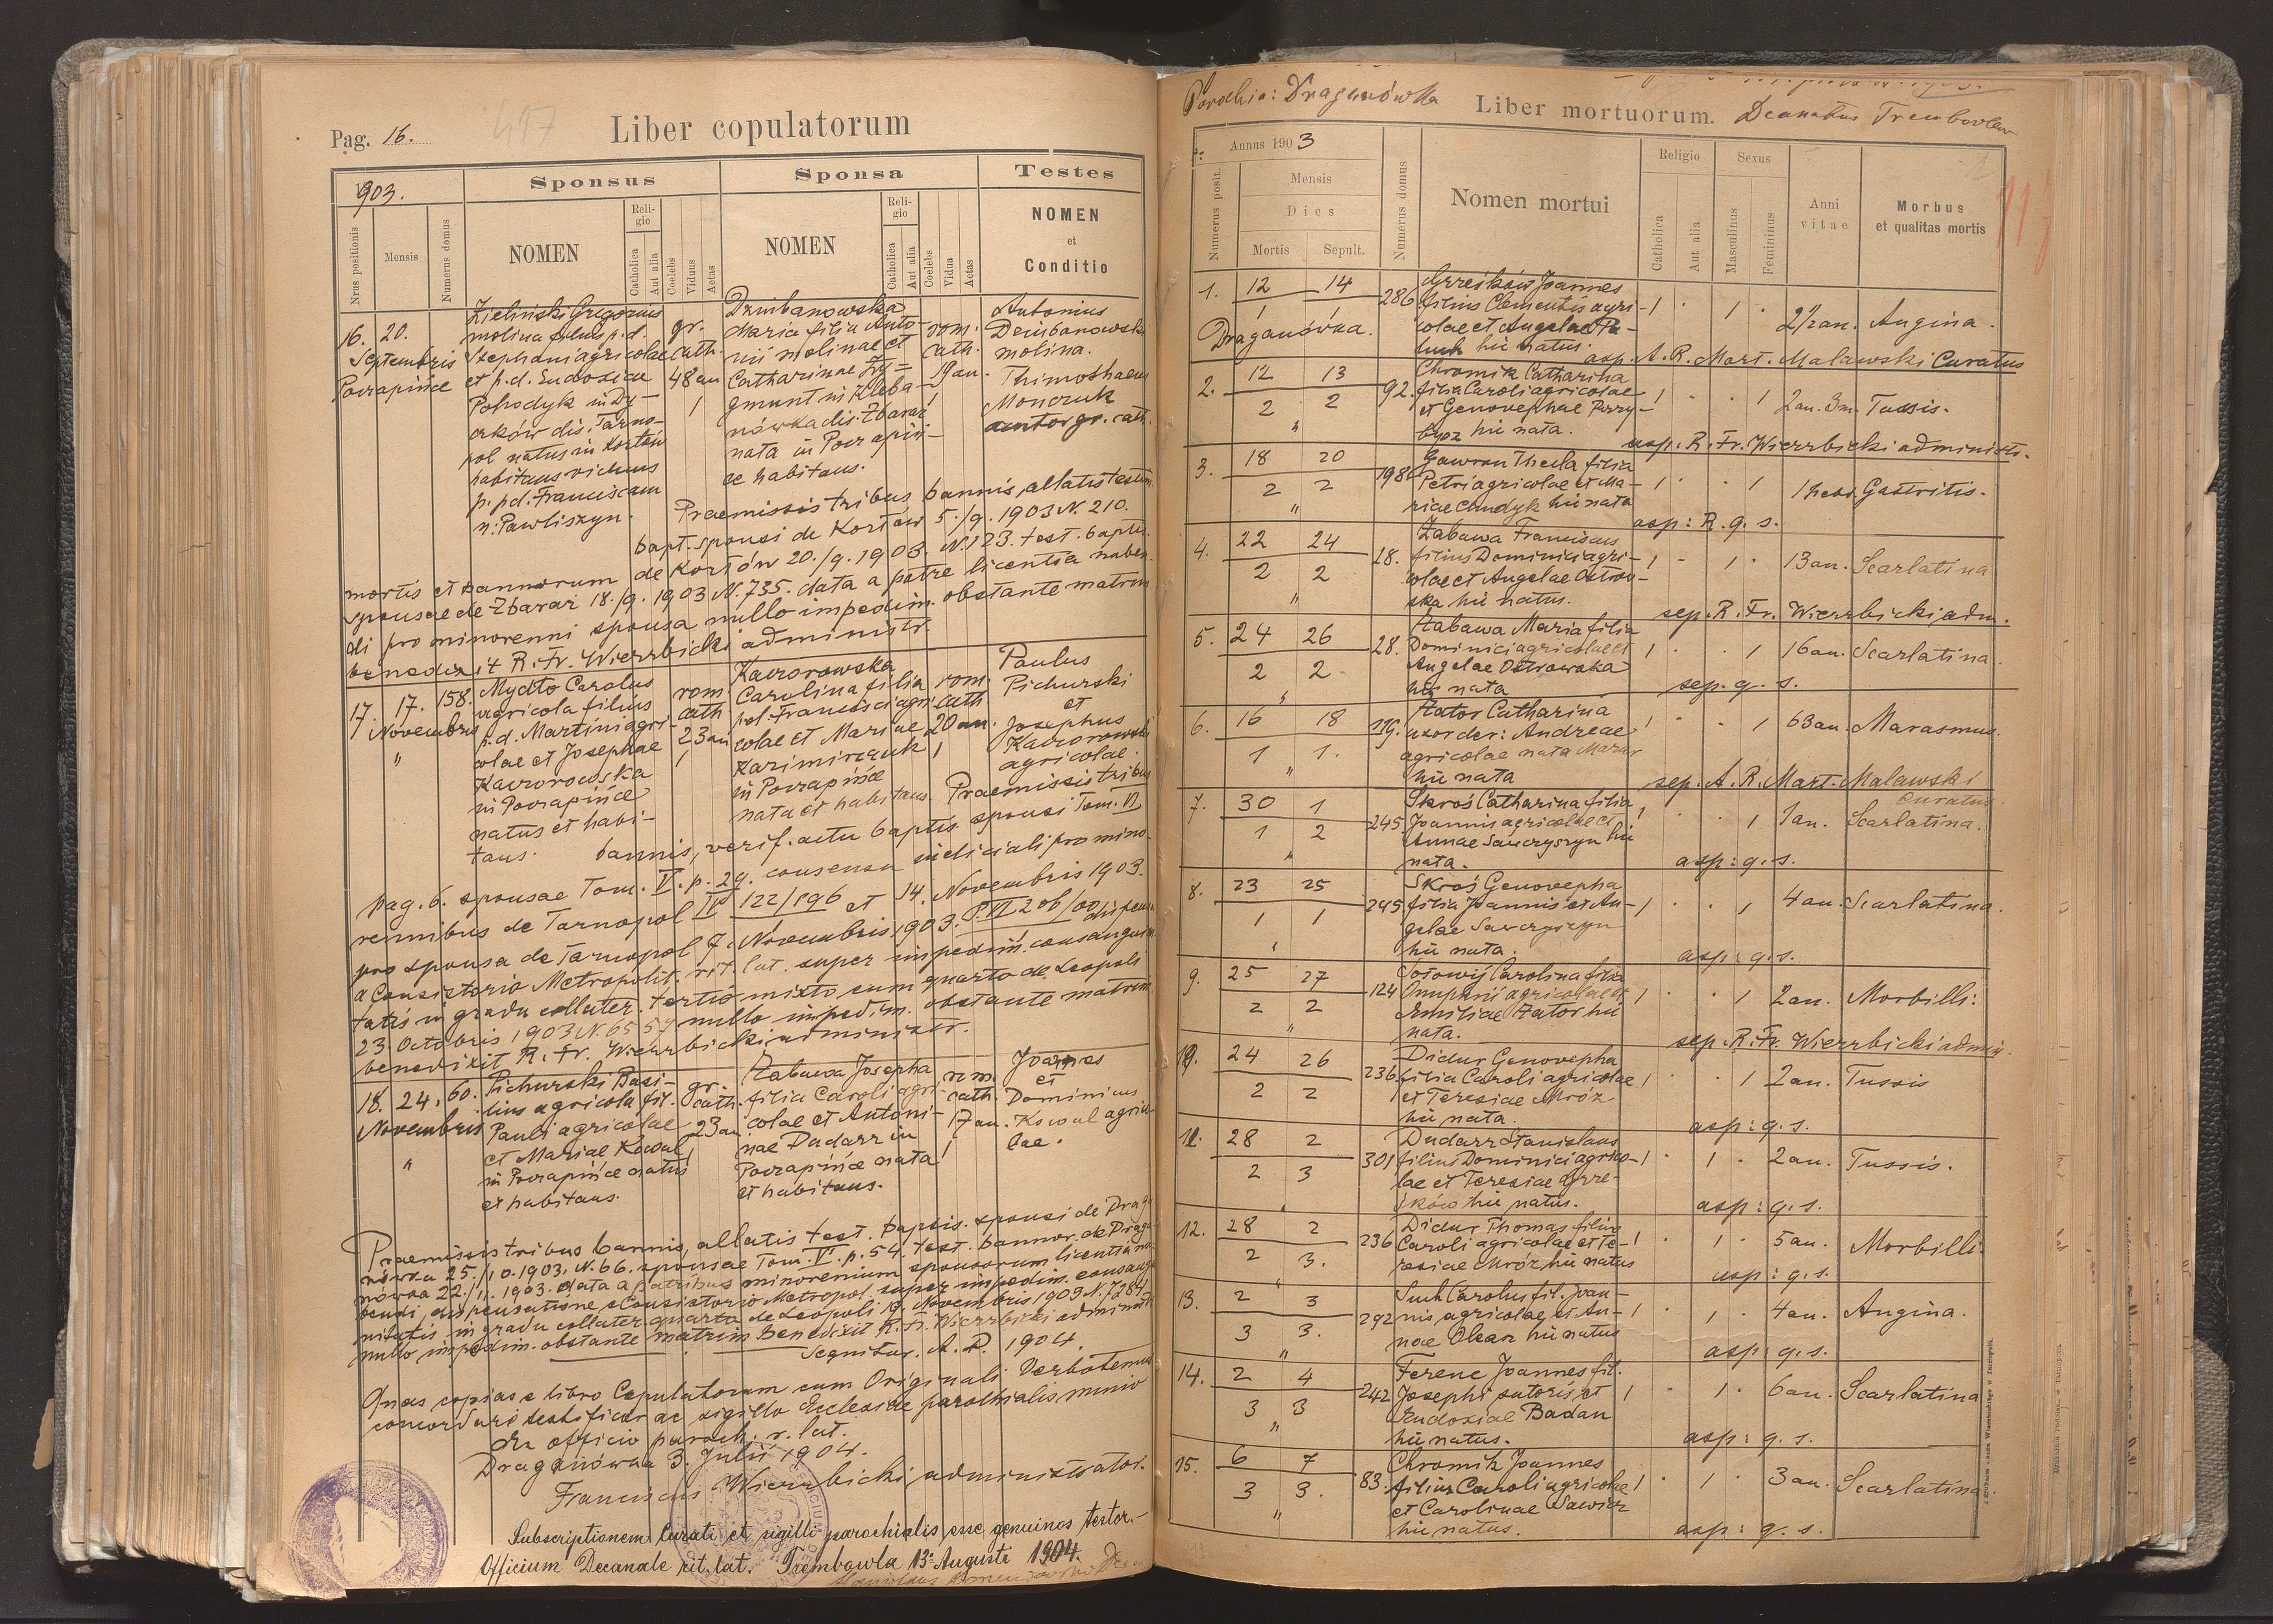 Pag. 16.
417
Liber copulatorum
1903.
Sponsus
Sponsa
Testes
Nrus positionis
Mensis
Numerus domus
NOMEN
Religio
Catholica
Aut alia
Coelebs
Viduus
Aetas
NOMEN
Religio
Catholica
Aut alia
Coelebs
Vidua
Aetas
NOMEN
et
Conditio
16. 20.
Septembris
Poczapińce
Zieliński Gregorius
molina filius p.d.
Stephani agricolae
et p.d. Eudoxiae
Pohodyk in Dy-
czków dis. Tarno-
pol natus in Kozłów
habitans viduus
p. pd. Franciscam
n. Pawliszyn.
gr.
cath.
48 an
1
Dziubanowska
Maria filia Anto-
nii molinae et
Catharinae Zy-
gmunt in Kleba-
nówka dis. Zbaraż
nata in Poczapiń-
ce habitans.
rom.
cath.
19 an.
1
Antonius
Dziubanowski
molina.
Thimothaeus
Monczuk
cantor gr. cath.
Praemissis tribus bannis, allatis testim.
bapt. sponsi de Kozłów 5./9. 1903 N. 210.
mortis et bannorum de Kozłów 20./9. 1903. N. 123. test. baptis.
sponsae de Zbaraż 18./9. 1903 N. 735. data a patre licentia nuben-
di pro minorenni sponsa nullo impedim. obstante matrim.
benedixit R. Fr. Wierzbicki administr.
17. 17. 158.
Novembris
"
Mydło Carolus
agricola filius
p.d. Martini agri-
colae et Josephae
Kaczorowska
in Poczapińce
natus et habi-
tans.
rom
cath
23 an
1
Kaczorowska
Carolina filia
pd. Francisci agri-
colae et Mariae
Kazimirczuk
in Poczapińce
nata et habitans.
rom.
cath
20 an.
1
Paulus
Pichurski
et
Josephus
Kaczorowski
agricolae.
Praemissis tribus
bannis, verif. actu baptis. sponsi Tom. VI
pag. 6. sponsae Tom. V. p. 29. consensu iudiciali pro mino-
rennibus de Tarnopol IV 122/896 et 14. Novembris 1903.
pro sponsa de Tarnopol 7. Novembris 1903. P. VI 206/00 dispens.
a Consistorio Metropolit. rit. lat. super impedim. consanguini-
tatis in gradu collater. tertio mixto cum quarto de Leopoli
23. Octobris 1903 N. 6557 nullo impedim. obstante matrim.
benedixit R. Fr. Wierzbicki administr.
18. 24. 60.
Novembris
"
Pichurski Basi-
lius agricola fil.
Pauli agricolae
et Mariae Kowal
in Poczapińce natus
et habitans.
gr.
cath.
23 an
1
Zabawa Josepha
filia Caroli agri-
colae et Antoni-
nae Dudarz in
Poczapińce nata
et habitans.
rom.
cath.
17 an.
1
Joannes
et
Dominicus
Kowal agrico-
lae.
Praemissis tribus bannis, allatis test. baptis. sponsi de Draga-
nówka 25./10. 1903. N. 66. sponsae Tom. VI. p. 54. test. bannor. de Draga-
nówka 22./11. 1903. data a patribus minorennium sponsorum licentia nu-
bendi dispensatione a Consistorio Metropol. super impedim. consangui-
nitatis in gradu collater. quarto de Leopoli 19. Novembris 1903 N. 7284
nullo impedim. obstante matrim. Benedixit R. Fr. Wierzbicki administr.
Sequitur. A. D. 1904.
Quas copias e libro Copulatorum cum Originali Verbotenus
concordare testificor ac sigillo Ecclesiae parochialis munio
Ex officio paroch. r. lat.
Draganówka 3. Julii 1904.
Franciscus Wierzbicki administrator.
Subscriptionem Curati et sigilli parochialis esse genuinos testor.-
Officium Decanale rit. lat. Trembowla 13. Augusti 1904.
Parochia: Draganówka
Liber mortuorum.
Decanatus Trembovlen
Annus 1903
Numerus posit.
Mensis
Dies
Mortis
Sepult.
Numerus domus
Nomen mortui
Religio
Catholica
Aut alia
Sexus
Masculinus
Femininus
Anni
vitae
Morbus
et qualitas mortis
1. 12 14
1 1
Draganówka.
286
Grześków Joannes
filius Clementis agri-
colae et Angelae Pa-
luch hic natus.
1 . 1 .
2 1/2 an. Angina.
asp. A. R. Mart. Malawski Curatus
2. 12 13
2 2
"
92.
Chromik Catharina
filia Caroli agricolae
et Genovephae Przy-
bysz hic nata.
1 . . 1
2 an. 3 m. Tussis.
asp. R. Fr. Wierzbicki administr.
3. 18 20
2 2
"
198
Gawron Thecla filia
Petri agricolae et Ma-
riae Chudyk hic nata
1 . . 1
1 hebd. Gastritis.
asp: R. q. s.
4. 22 24
2 2
"
28.
Zabawa Franciscus
filius Dominici agri-
colae et Angelae Ostrow-
ska hic natus.
1 - 1 .
13 an. Scarlatina
sep. R. Fr. Wierzbicki adm.
5. 24 26
2 2
"
28.
Zabawa Maria filia
Dominici agricolae et
Angelae Ostrowska
hic nata
1 . . 1
16 an. Scarlatina.
sep. q. s.
6. 16 18
1 1.
"
119.
Zator Catharina
uxor der: Andreae
agricolae nata Mazur
hic nata
1 . . 1
63 an. Marasmus.
sep. A. R. Mart. Malawski
Curatus.
7. 30 1
1 2
"
245
Skroś Catharina filia
Joannis agricolae et
Annae Sawczyszyn hic
nata.
1 . . 1
7 an. Scarlatina.
asp: q. s.
8. 23 25
1 1
"
245
Skroś Genovepha
filia Joannis et An-
gelae Sawczyszyn
hic nata.
1 . . 1
4 an. Scarlatina.
asp: q. s.
9. 25 27
2 2
"
124
Sołowij Carolina filia
Onuphrii agricolae et
Emiliae Zator hic
nata.
1 . . 1
2 an. Morbilli.
sep. R. Fr. Wierzbicki admin.
10. 24 26
2 2
236
Didur Genovepha
filia Caroli agricolae
et Teresiae Mróz
hic nata.
1 . . 1
2 an. Tussis
asp: q. s.
11. 28 2
2 3
"
301
Dudarz Stanislaus
filius Dominici agrico-
lae et Teresiae Grze-
śków hic natus.
1 . 1 .
2 an. Tussis.
asp: q. s.
12. 28 2
2 3.
"
236
Didur Thomas filius
Caroli agricolae et Te-
resiae Mróz hic natus
1 . 1 .
5 an. Morbilli
asp: q. s.
13. 2 3
3 3.
"
292
Such Carolus fil. Joan-
nis agricolae et An-
nae Olearz hic natus
1 . 1 .
4 an. Angina.
asp: q. s.
14. 2 4
3 3
"
242
Ferenc Joannes fil.
Josephi sutoris et
Eudoxiae Badan
hic natus.
1 . 1 .
6 an. Scarlatina
asp: q. s.
15. 6 7
3 3.
"
83.
Chromik Joannes
filius Caroli agricolae
et Carolinae Sawicz
hic natus.
1 . 1 .
3 an. Scarlatina
asp: q. s.